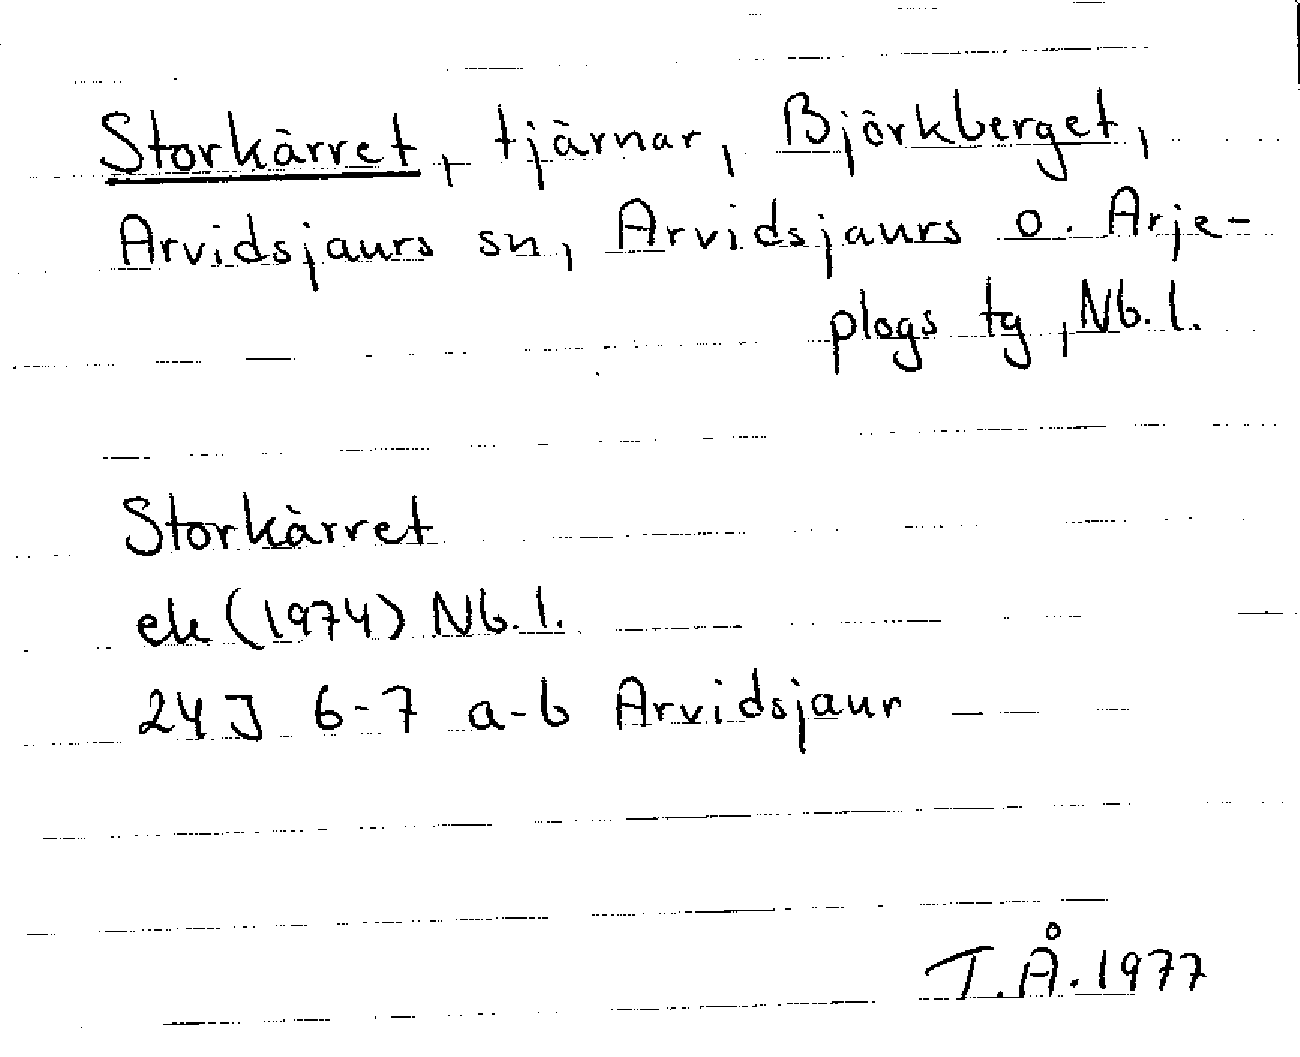 Storkärret, tjärnar, Björkberget,
Arvidsjaurs sn, Arvidsjaurs o. Arje-
plogs tg, Nb. l.
Storkärret
ek (1974) Nb. l.
24 J 6-7 a-b Arvidsjaur
T.Å. 1977